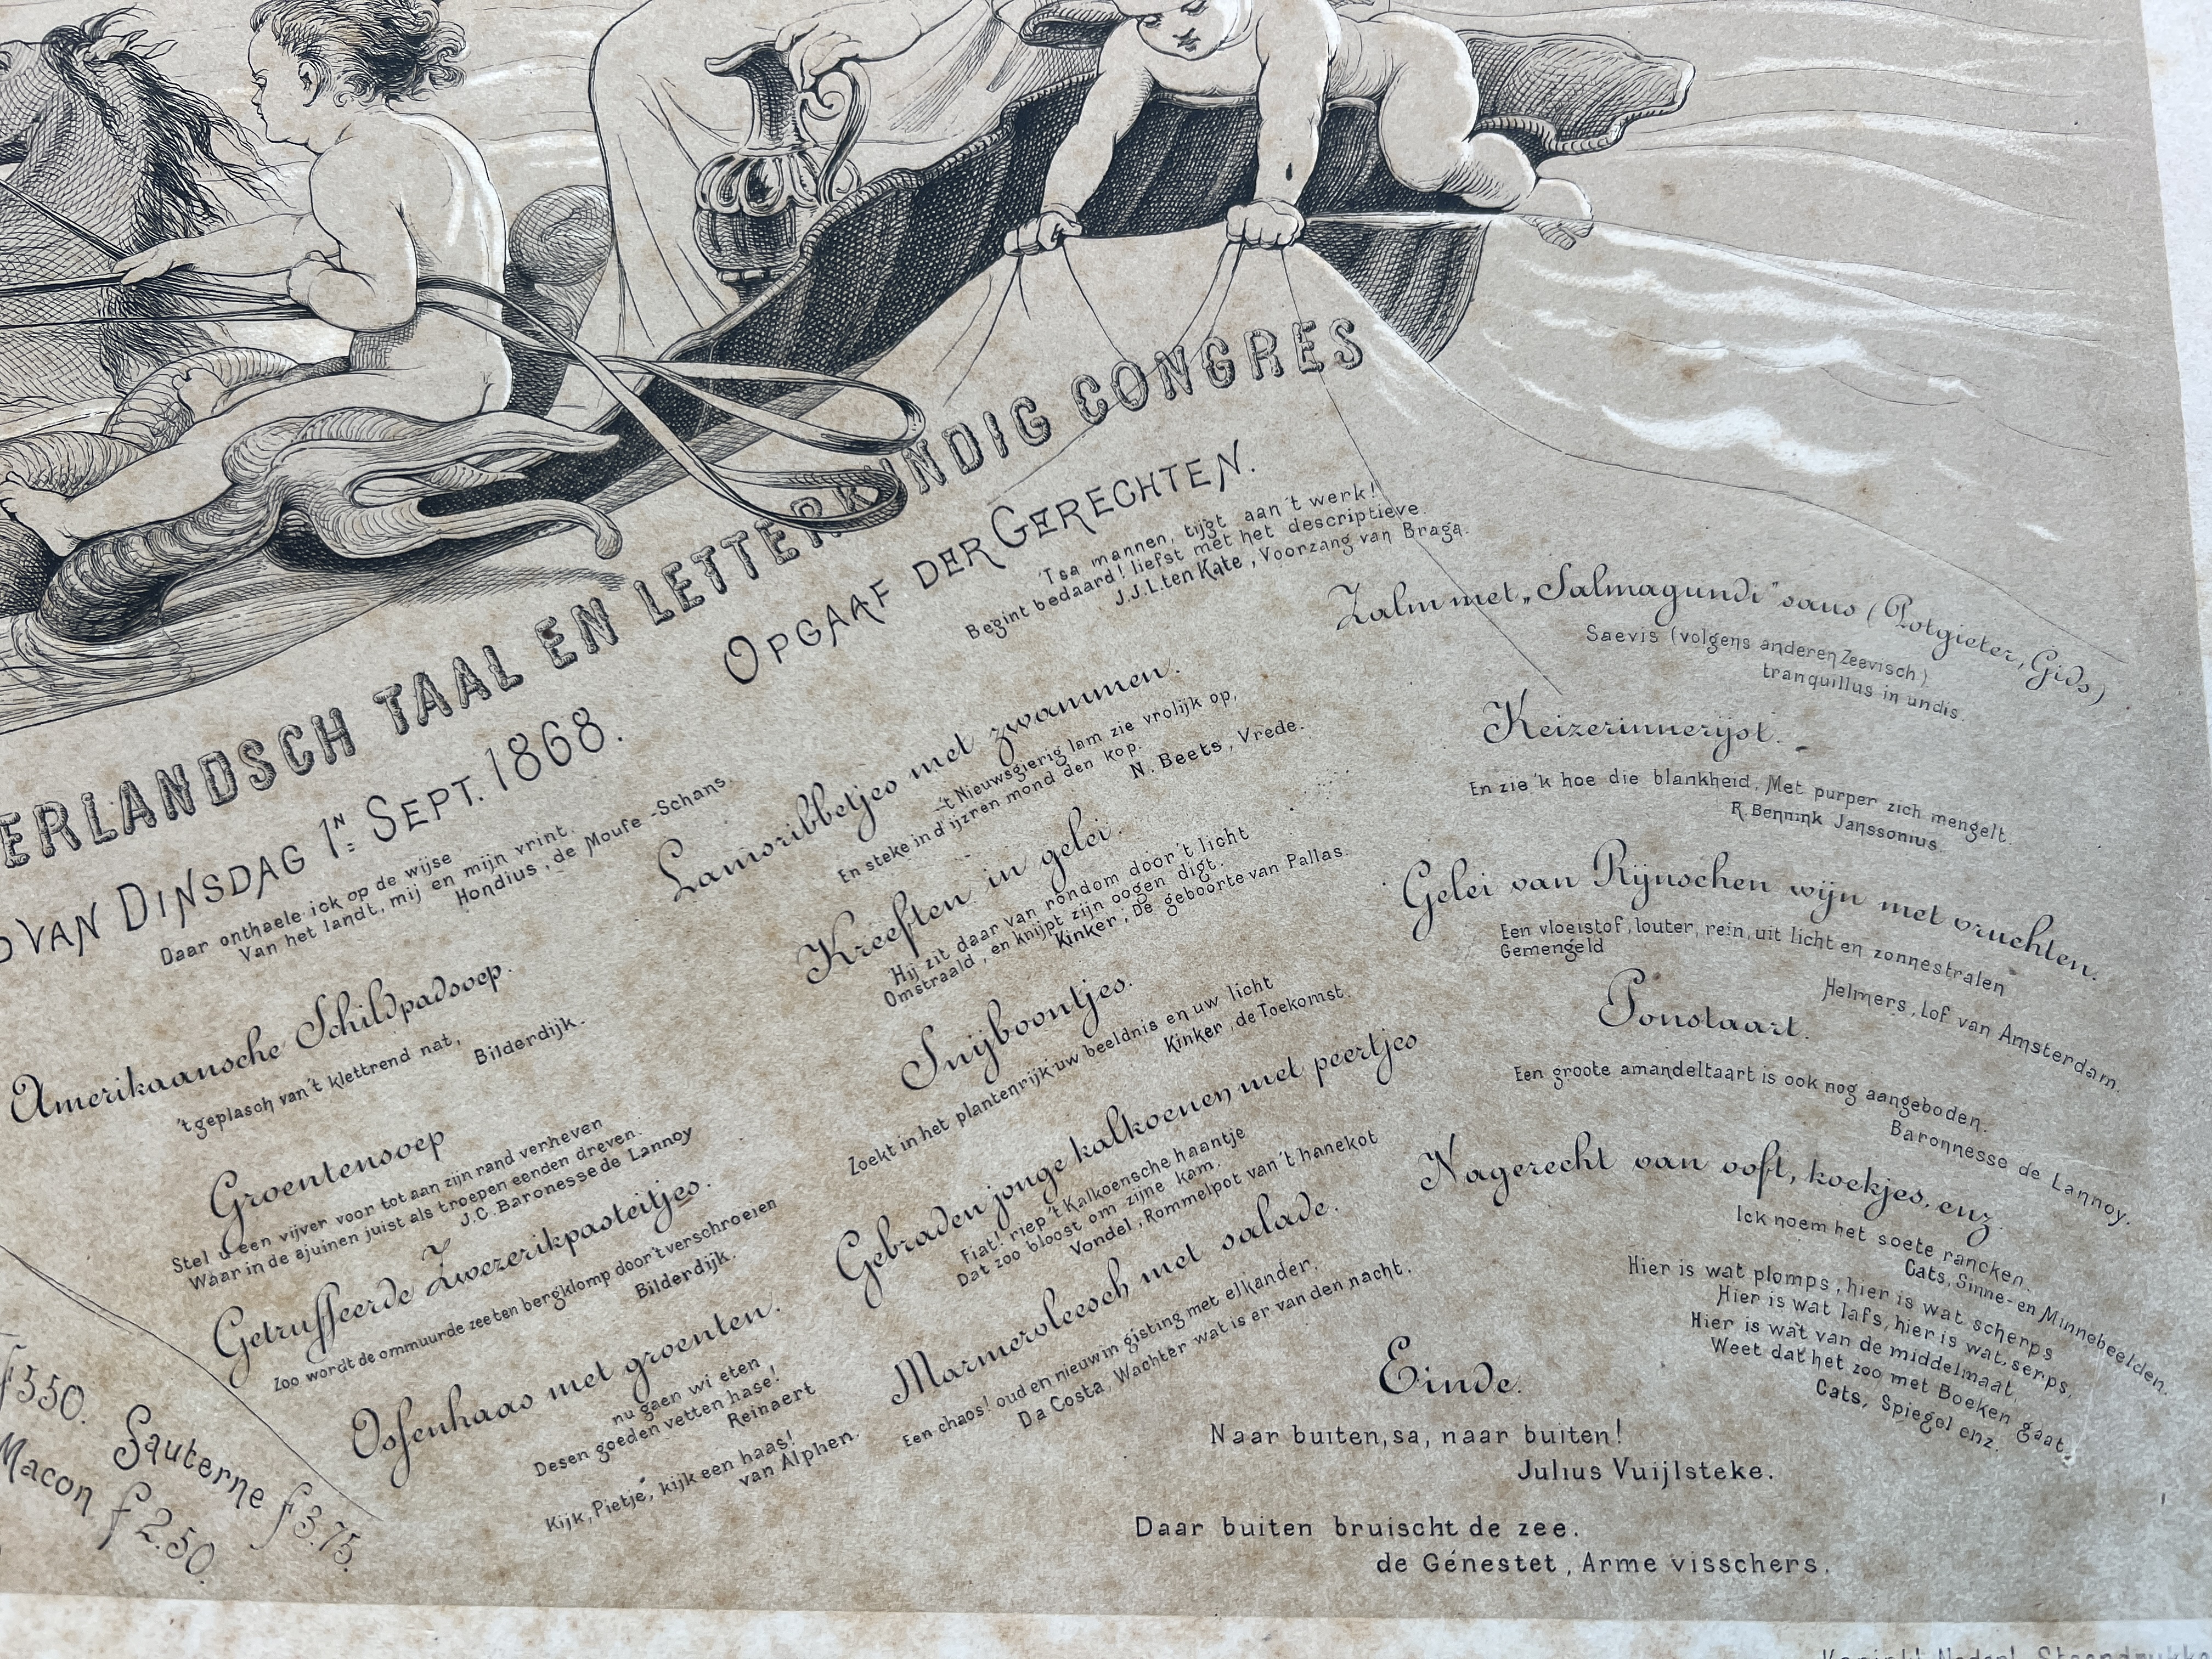 ERLANDSCH TAAL EN LETTERKUNDIG CONGRES
VAN DINSDAG 1N SEPT. 1868.
OPGAAF DER GERECHTEN.
'Tsa mannen, tijgt aan't werk!
Begint bedaard! liefst met het descriptieve.
J.J.L. ten Kate, Voorzang van Braga.
Daar onthaele ick op de wijse
Van het landt, mij en mijn vrint.
Hondius, de Moufe-Schans.
Amerikaansche Schildpadsoep.
't geplasch van't klettrend nat,
Bilderdijk.
Groentensoep
Stel u een vijver voor tot aan zijn rand verheven
Waar in de ajuinen juist als troepen eenden dreven.
J.C. Baronesse de Lannoy
Getruffeerde Zwezerikpasteitjes.
Zoo wordt de ommuurde zee ten bergklomp door't verschroeien
Bilderdijk.
Ossenhaas met groenten.
nu gaen wi eten
Desen goeden vetten hase!
Reinaert
Kijk, Pietje, kijk een haas!
van Alphen.
Lamsribbetjes met zwammen.
—'t Nieuwsgierig lam zie vrolijk op,
En steke in d'ijzren mond den kop.
N. Beets, Vrede.
Kreeften in gelei.
Hij zit daar van rondom door't licht
Omstraald, en knijpt zijn oogen digt.
Kinker, De geboorte van Pallas.
Snijboontjes.
Zoekt in het plantenrijk uw beeldnis en uw licht
Kinker, de Toekomst.
Gebraden jonge kalkoenen met peertjes
Fiat! riep 't Kalkoensche haantje
Dat zoo bloost om zijne kam.
Vondel, Rommelpot van't hanekot
Marmervleesch met salade.
Een chaos! oud en nieuw in gisting met elkander.
Da Costa, Wachter wat is er van den nacht.
Zalm met „Salmagundi" saus (Potgieter, Gids)
Saevis (volgens anderen Zeevisch)
tranquillus in undis.
Keizerinnerijst.
En zie 'k hoe die blankheid, Met purper zich mengelt.
R. Bennink Janssonius
Gelei van Rijnschen wijn met vruchten.
Een vloeistof, louter, rein, uit licht en zonnestralen
Gemengeld
Helmers, Lof van Amsterdam.
Ponstaart.
Een groote amandeltaart is ook nog aangeboden.
Baronnesse de Lannoy.
Nagerecht van ooft, koekjes, enz.
Ick noem het soete rancken.
Cats, Sinne- en Minnebeelden.
Hier is wat plomps, hier is wat scherps
Hier is wat lafs, hier is wat serps,
Hier is wat van de middelmaat,
Weet dat het zoo met Boeken gaat.
Cats, Spiegel enz.
Einde.
Naar buiten, sa, naar buiten!
Julius Vuijlsteke.
Daar buiten bruischt de zee.
de Génestet, Arme visschers.
f 3.50.
Sauterne f 3.75.
Macon f 2.50.